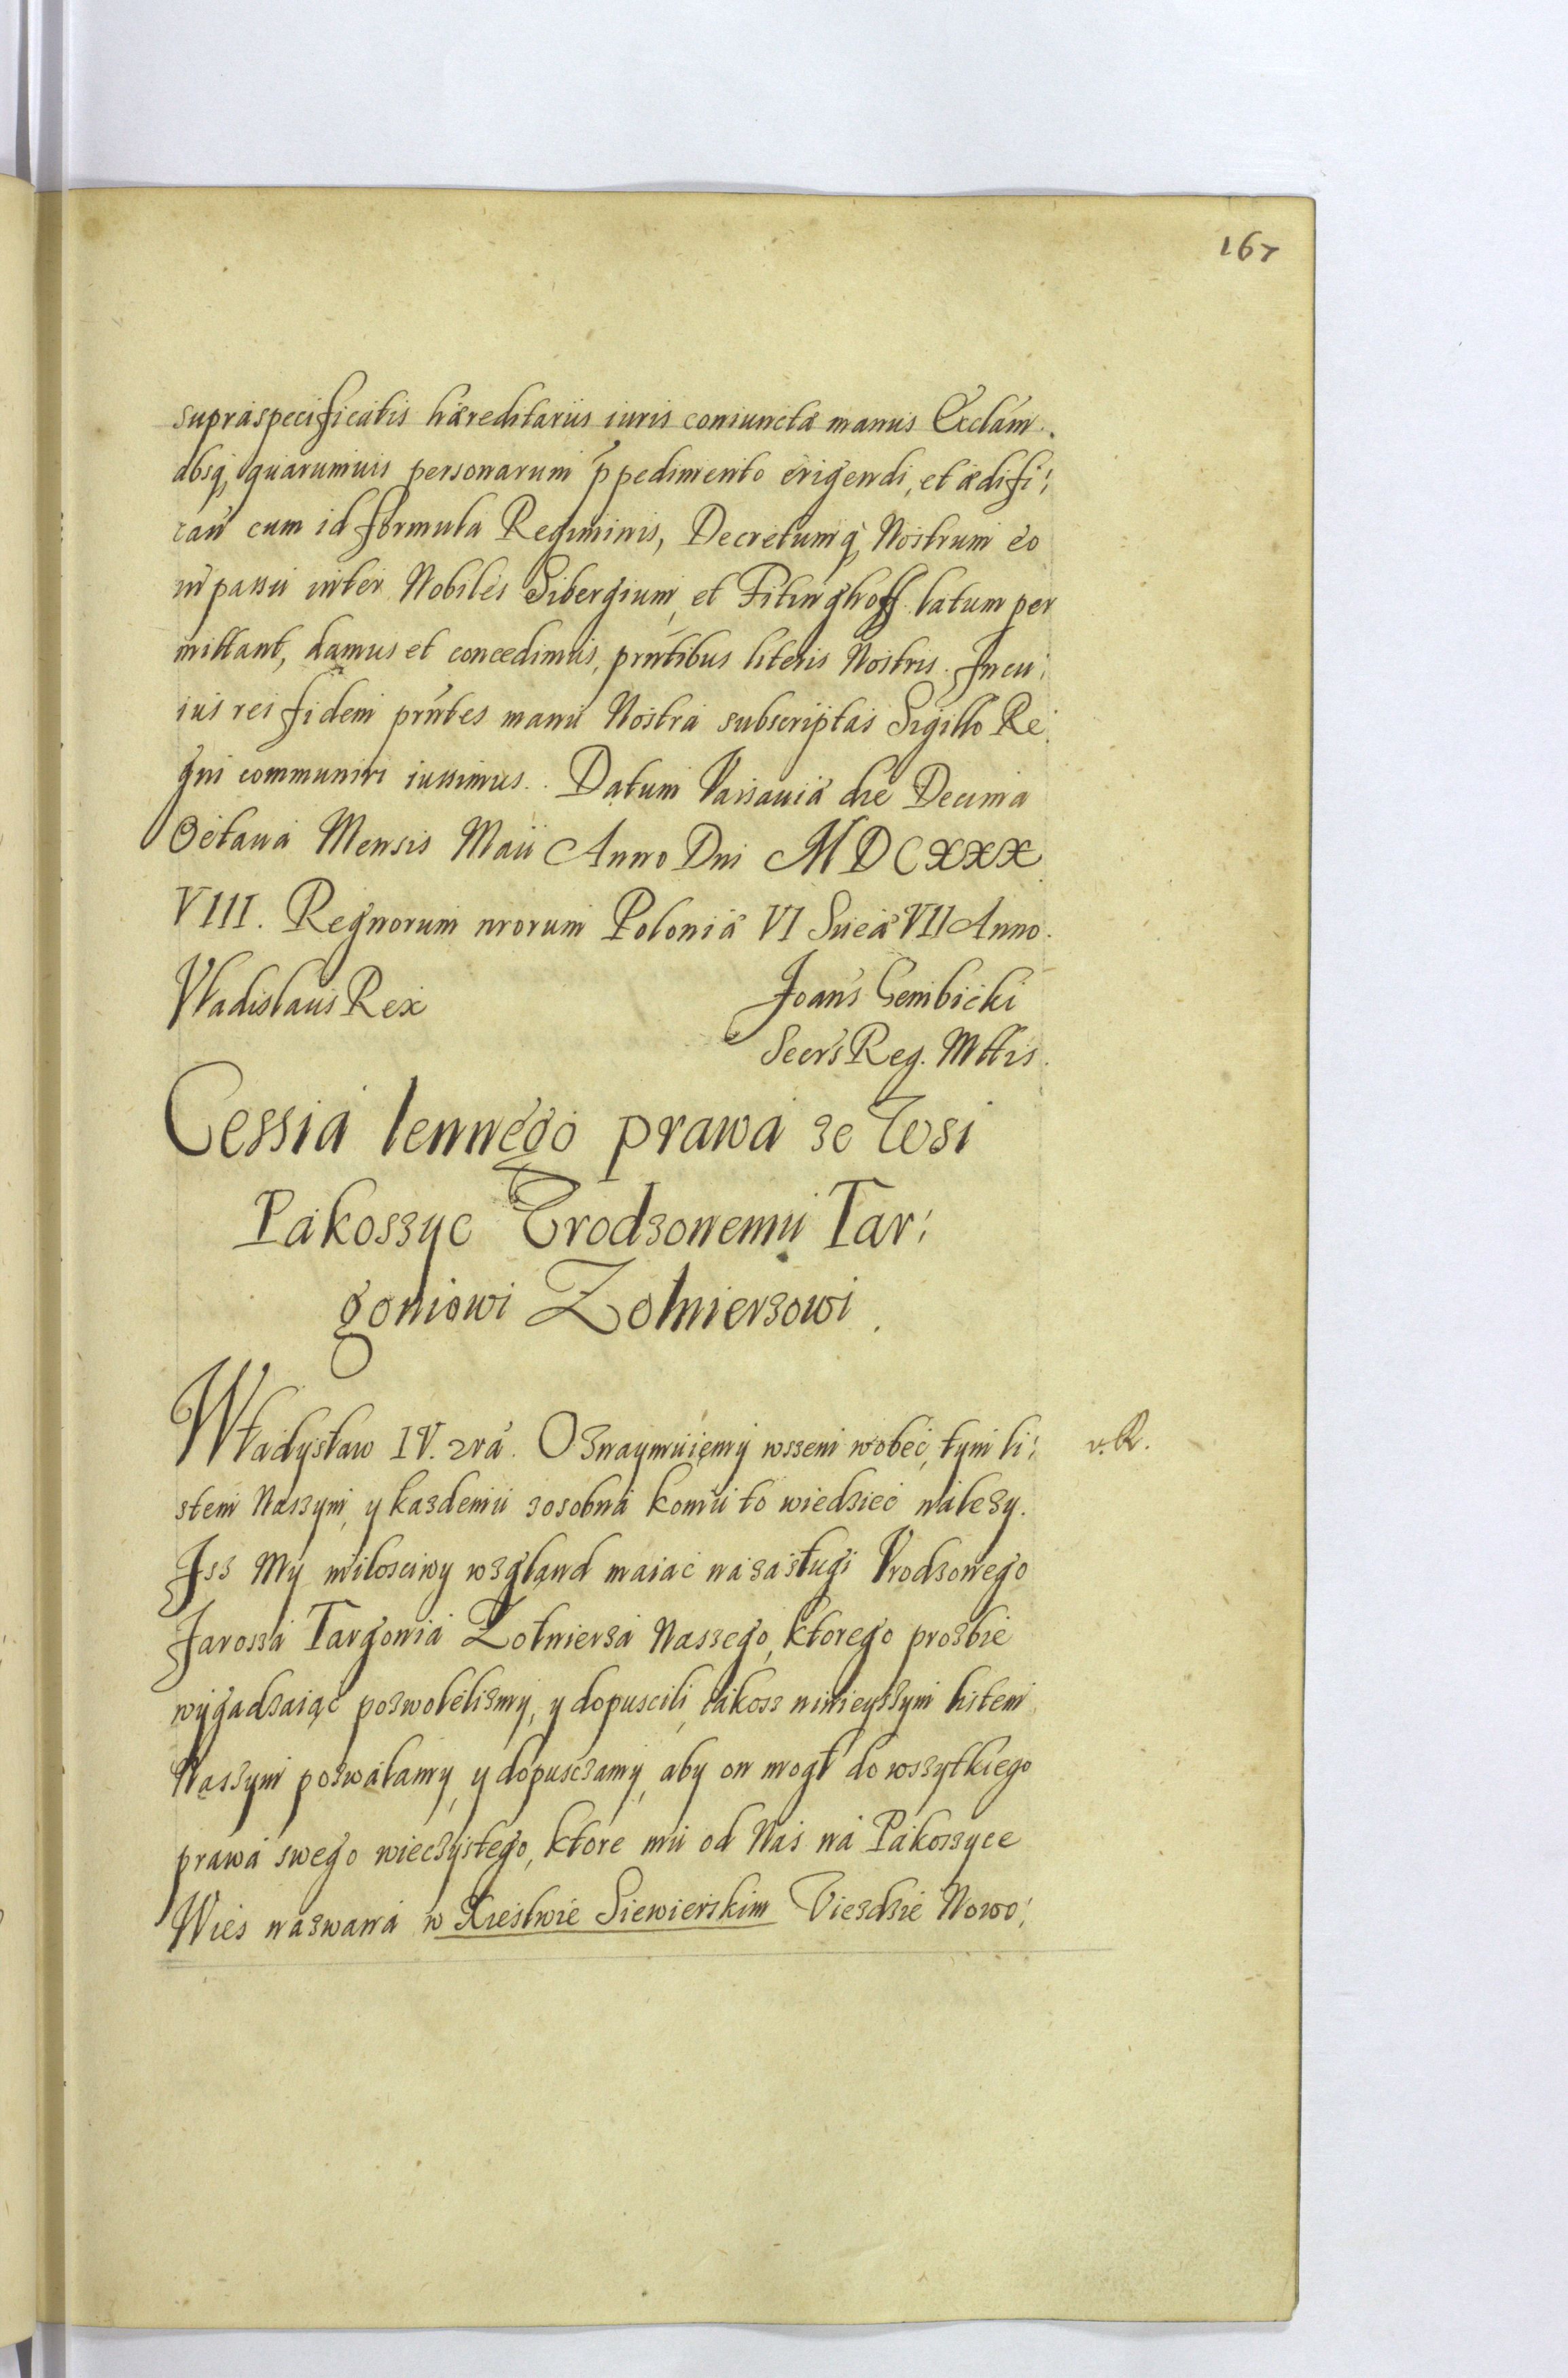 167
supraspecificatis hæreditariis iuris coniunctæ manus Ecclam
absq quarumuis personarum ppedimento erigendi, et ædifi:
can cum id formula Regiminis, Decretumq Nostrum eo
in passu inter Nobiles Sibergium, et Fitinghoff latum per
mittant, damus et concedimus, prntibus literis Nostris. In cu:
ius rei fidem prntes manu Nostra subscriptas Sigillo Re:
gni communiri iussimus. Datum Varsauiæ die Decima
Octaua Mensis Maii Anno Dni MDCXXX
VIII. Regnorum nrorum Poloniæ VI Sueæ VII Anno.
Vladislaus Rex
Joans Gembicki
Secrs Reg. Mttis.
Cessia lennego prawa ze Wsi
Pakoszyc Vrodzonemu Tar:
goniowi Zolnierzowi.
Władysław IV. zra. Oznaymuiemy wszem wobec, tym li:
v. R.
stem Naszym, y kazdemu zosobna komu to wiedziec nalezy.
Isz My miłosciwy wzgland maiac na zasługi Vrodzonego
Jarosza Targonia Zołnierza Naszego, ktorego prozbie
wygadzaiąc pozwolelismy, y dopuscili, iakosz ninieyszym listem
Naszym pozwalamy, y dopusczamy, aby on mogł do wszytkiego
prawa swego wieczystego, ktore mu od Nas na Pakoszyce
Wies nazwana w Xiestwie Siewierskim Viezdzie Nowo: